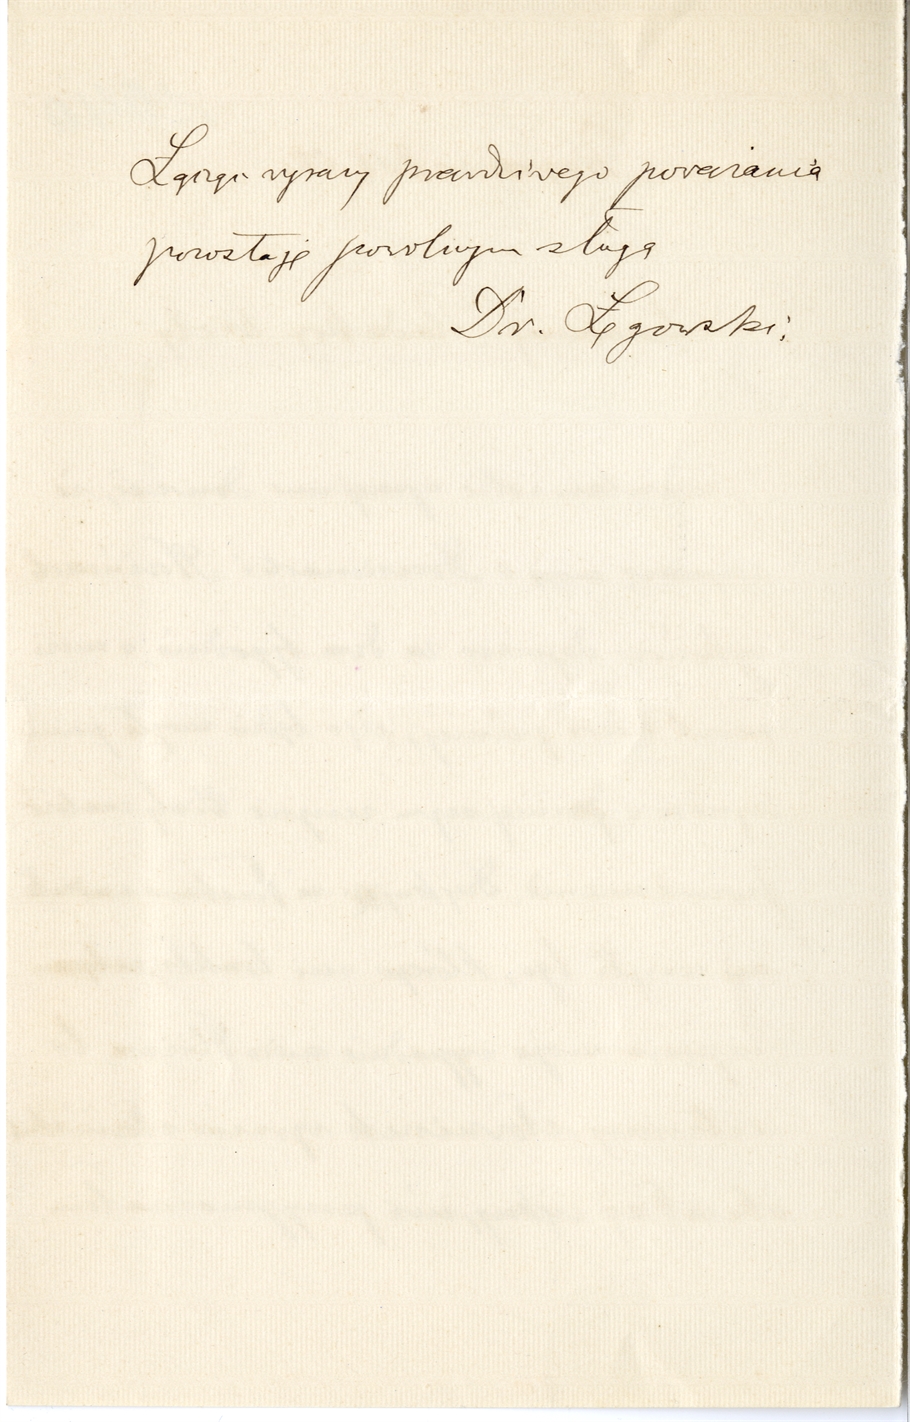 Łącząc wyrazy prawdziwego poważania
pozostaję powolnym sługą
Dr. Łęgowski.